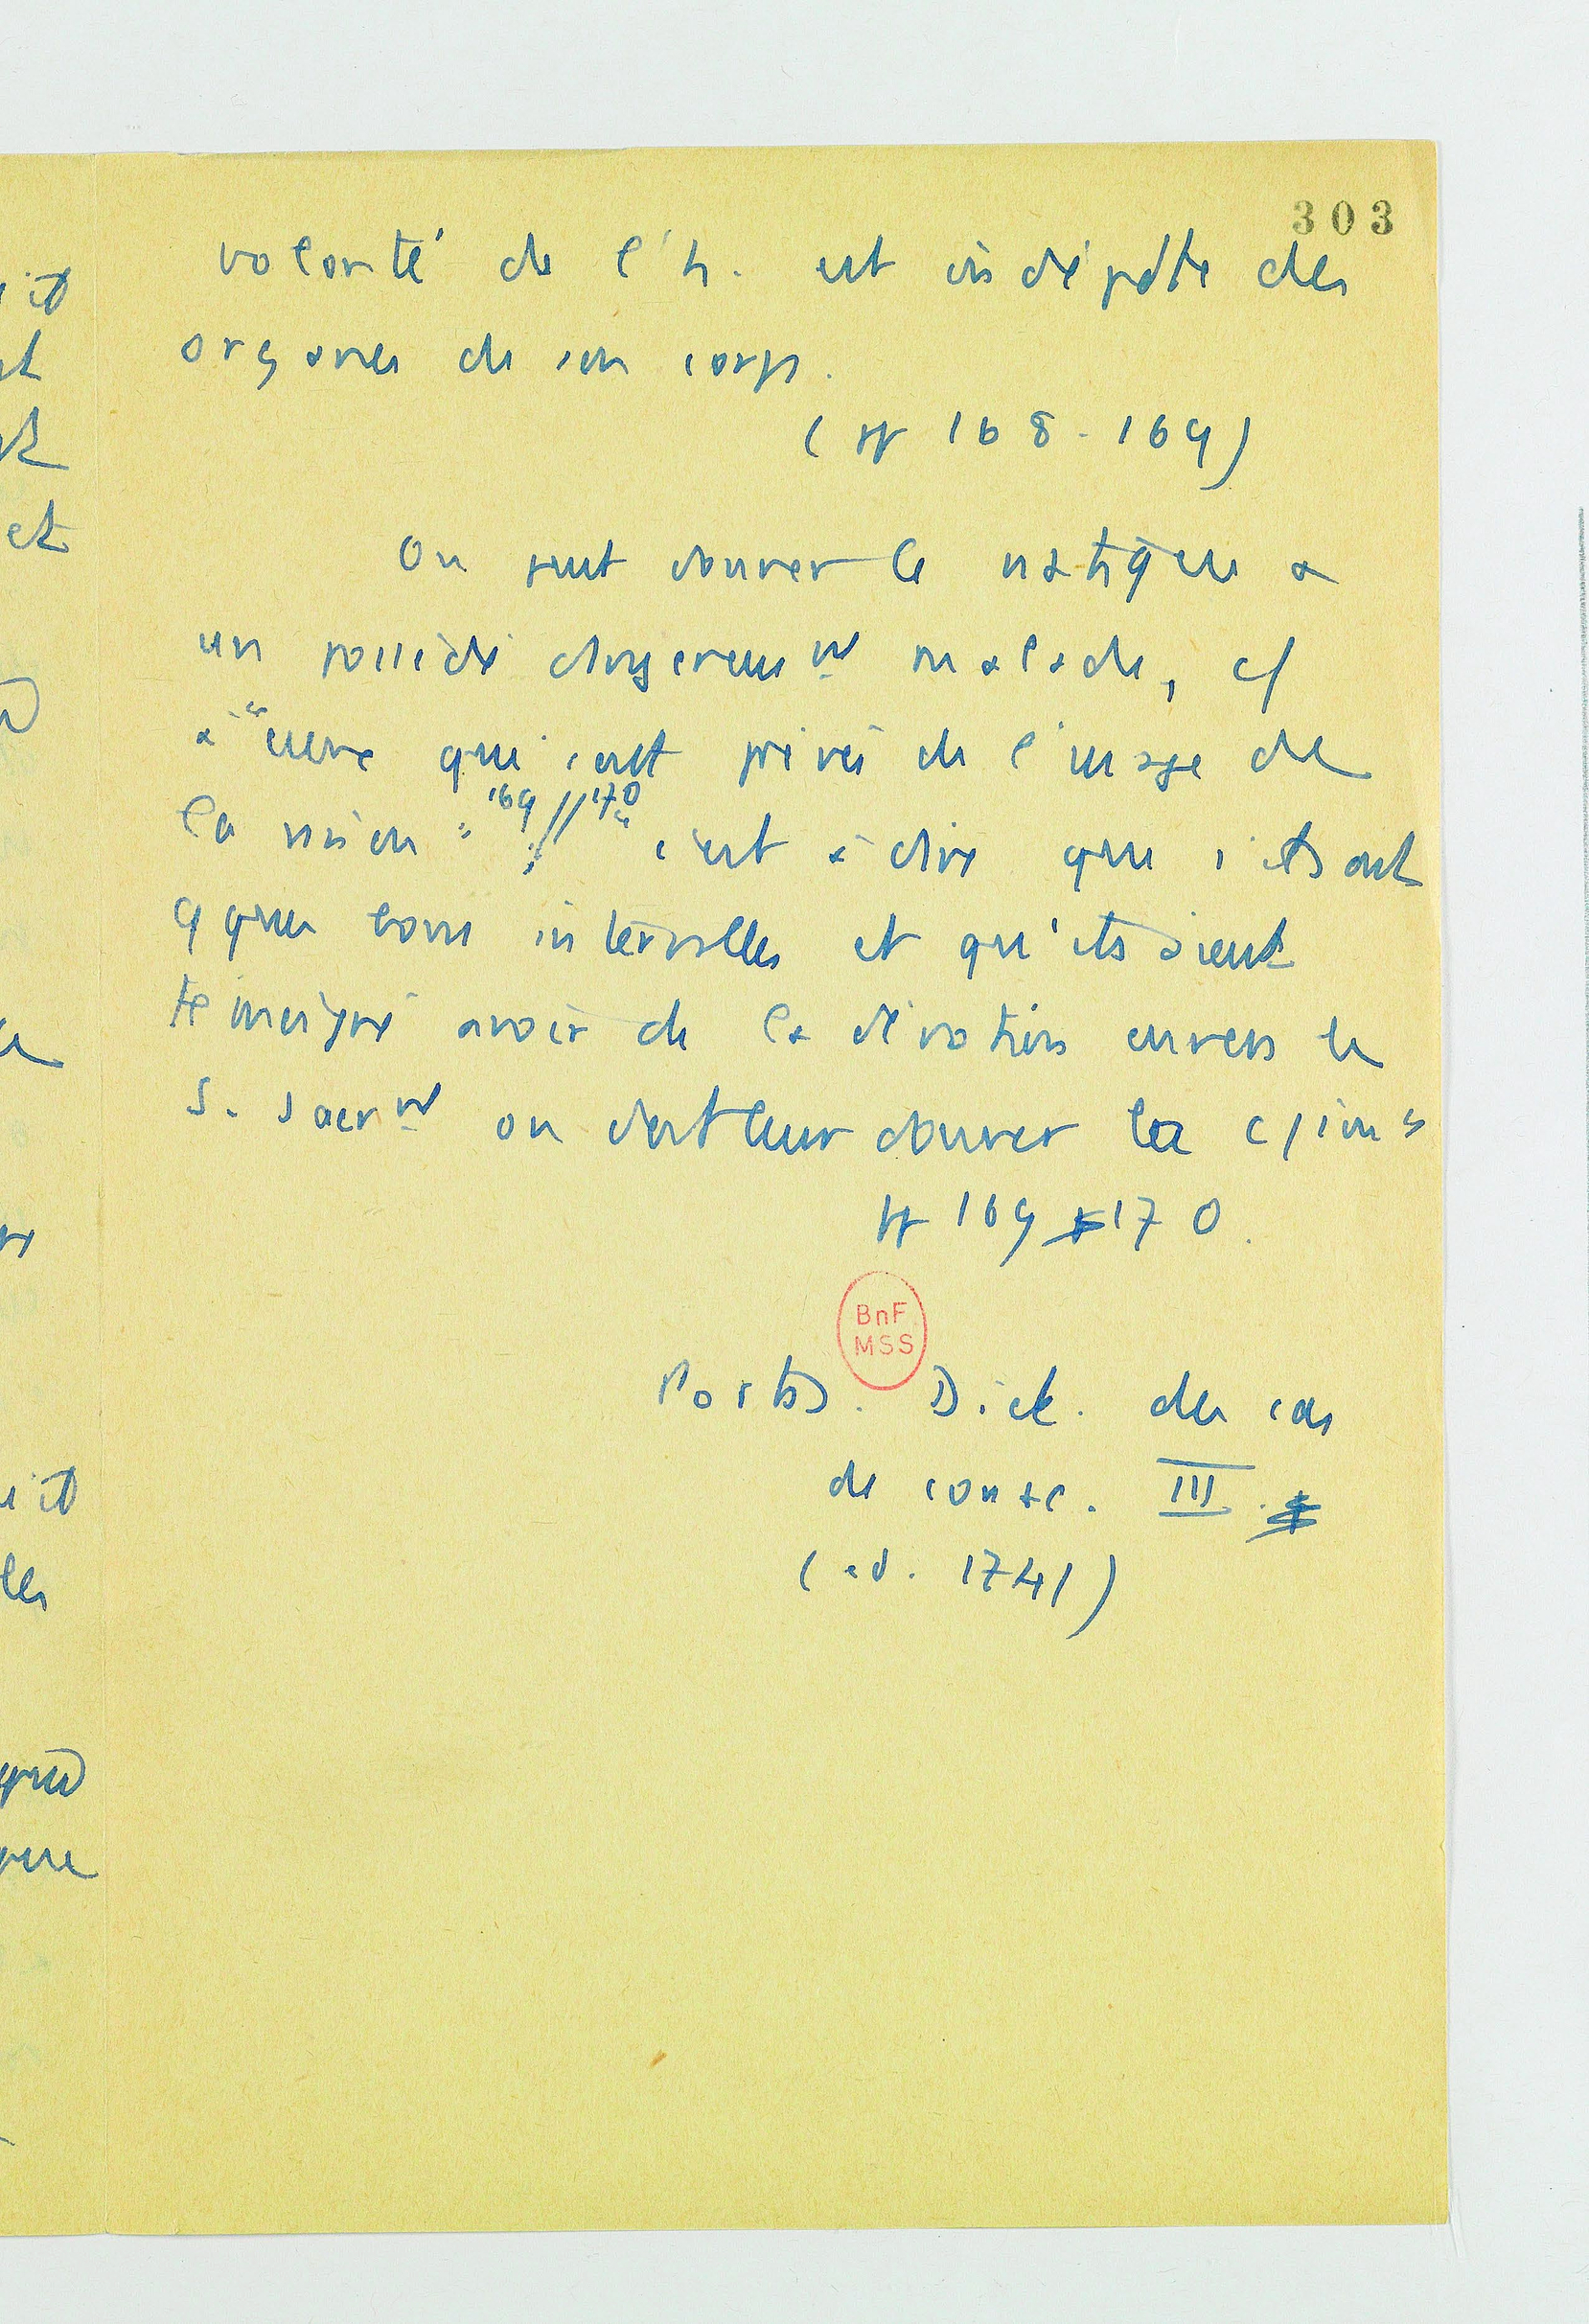 303
volonté de l'h. est indépdte des
organes de son corps.
(pp 168-169)
On peut donner le viatique à
un possédé dangereusemt malade, c/
à "ceux qui sont privés de l'usage de
la raison" 169//170 "c'est à dire que s'ils ont
qques bons intervalles et qu'ils aient
témoigné avoir de la dévotion envers le
S. Sacrmt on doit leur donner la c/ion"
pp 169 170.
BnF
MSS
Pontas. Dict. des cas
de consc. III.
(éd. 1741)